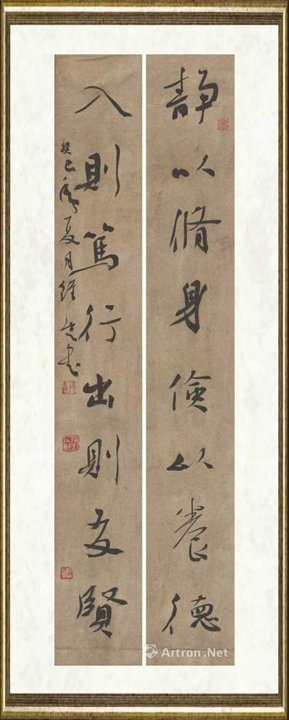 静以脩身儉以養德
入則篤行出則友賢
癸巳年夏月
Artron.Net